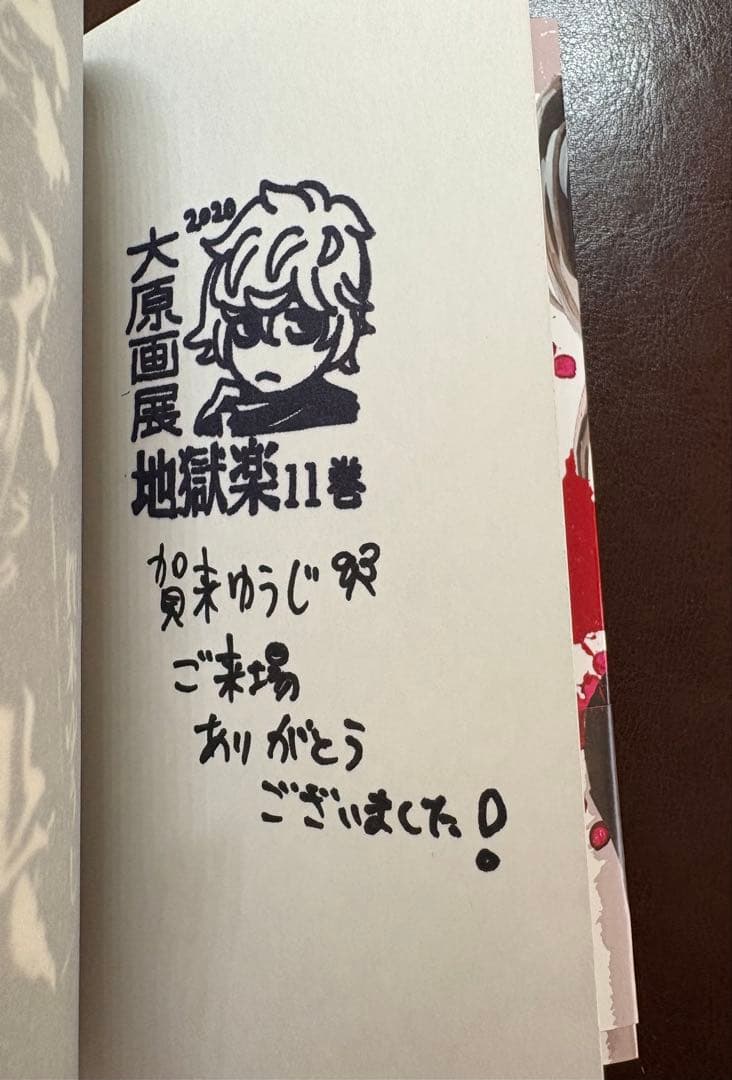 2020
大原画展
地獄楽11巻
賀来ゆうじ
ご来場
ありがとう
ございました!